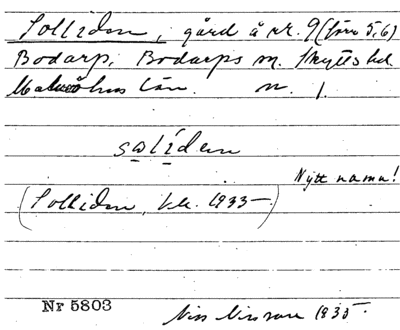 Solliden, gård å nr. 9 (förr 5, 6)
Bodarp, Bodarps sn. Skytts hd
Malmöhus län. n. 1.
salíden
Nytt namn!
(Solliden, kk. 1935—)
Nr 5803
Nils Nilsson 1935.